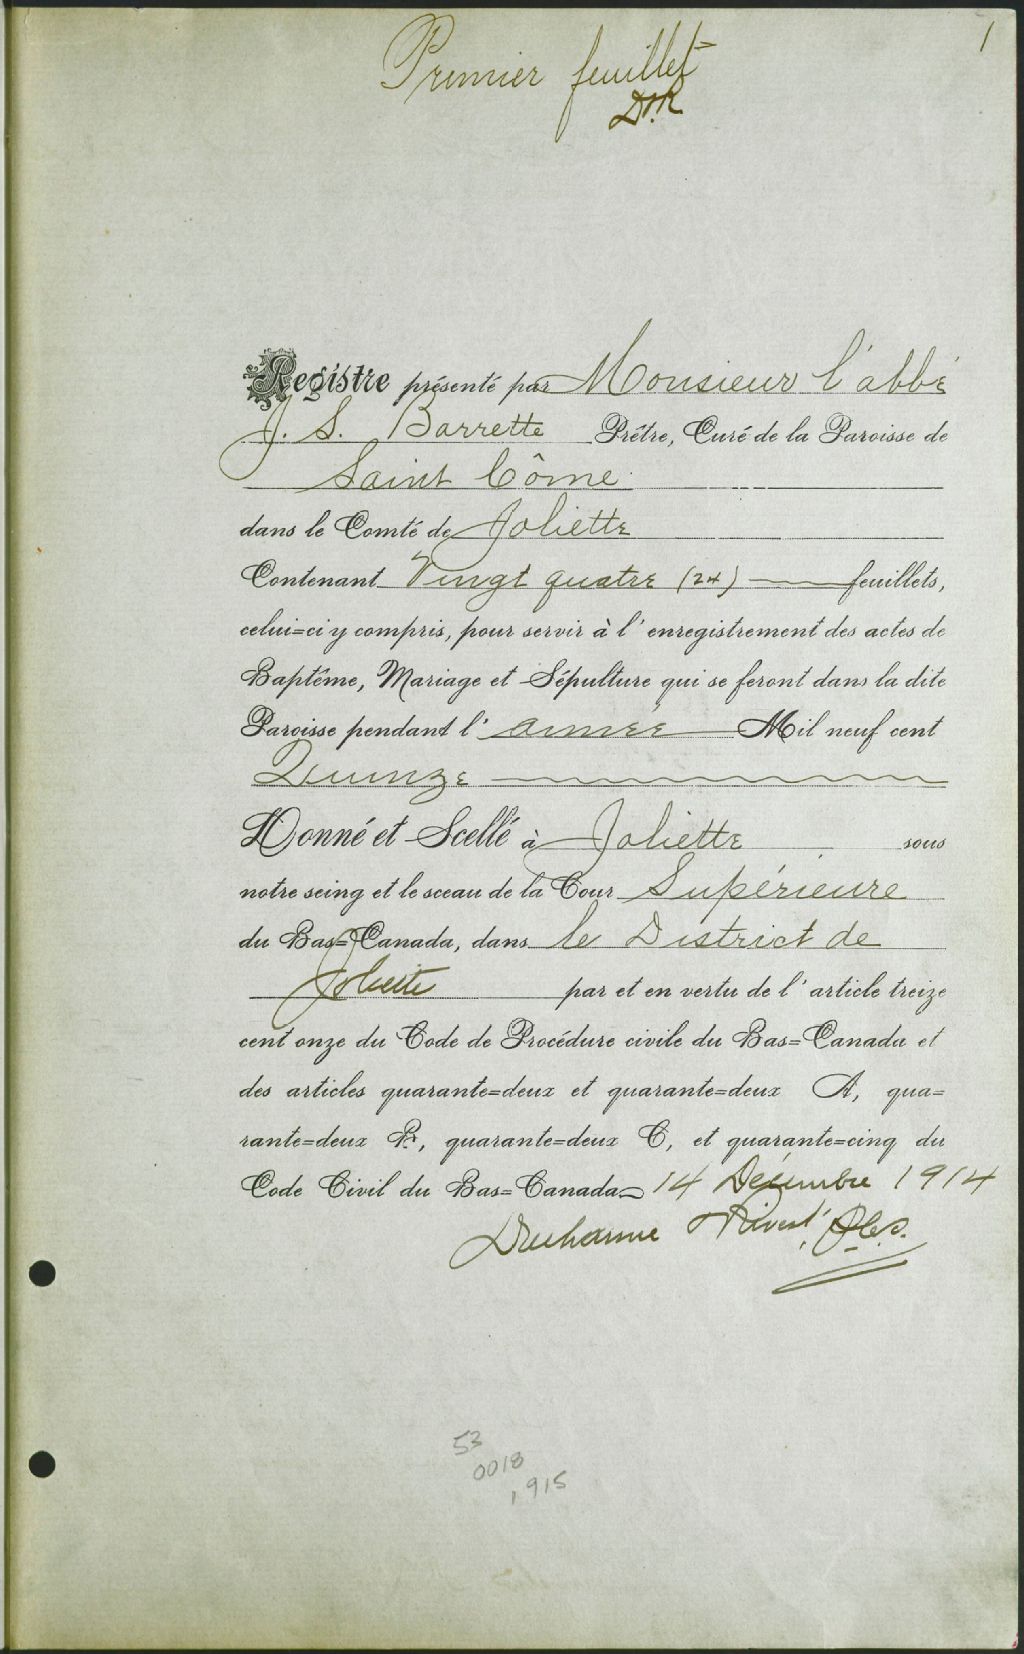 1
Premier feuillet
D&R
Registre présenté par Monsieur l'abbé
J. S. Barrette Prêtre, Curé de la Paroisse de
Saint Côme
dans le Comté de Joliette
Contenant Vingt quatre (24) feuillets,
celui=ci y compris, pour servir à l'enregistrement des actes de
Baptême, Mariage et Sépulture qui se feront dans la dite
Paroisse pendant l'année Mil neuf cent
Quinze
Donné et Scellé à Joliette sous
notre seing et le sceau de la Cour Supérieure
du Bas=Canada, dans le District de
Joliette par et en vertu de l'article treize
cent onze du Code de Procédure civile du Bas=Canada et
des articles quarante=deux et quarante=deux A, qua=
rante=deux B, quarante=deux C, et quarante=cinq du
Code Civil du Bas=Canada 14 Décembre 1914
Ducharme & Rivest
53
0018
1915